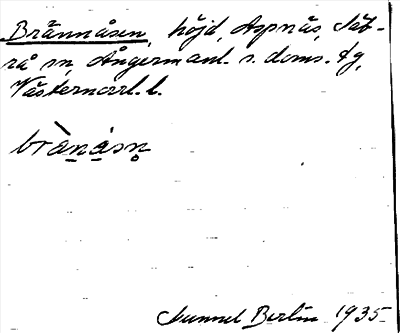 Brännåsen, höjd, Aspnäs, Säb-
rå sn, Ångermanl. s. doms. tg,
Västernorrl. l.
brànåsn̥
Gunnel Berlin 1935